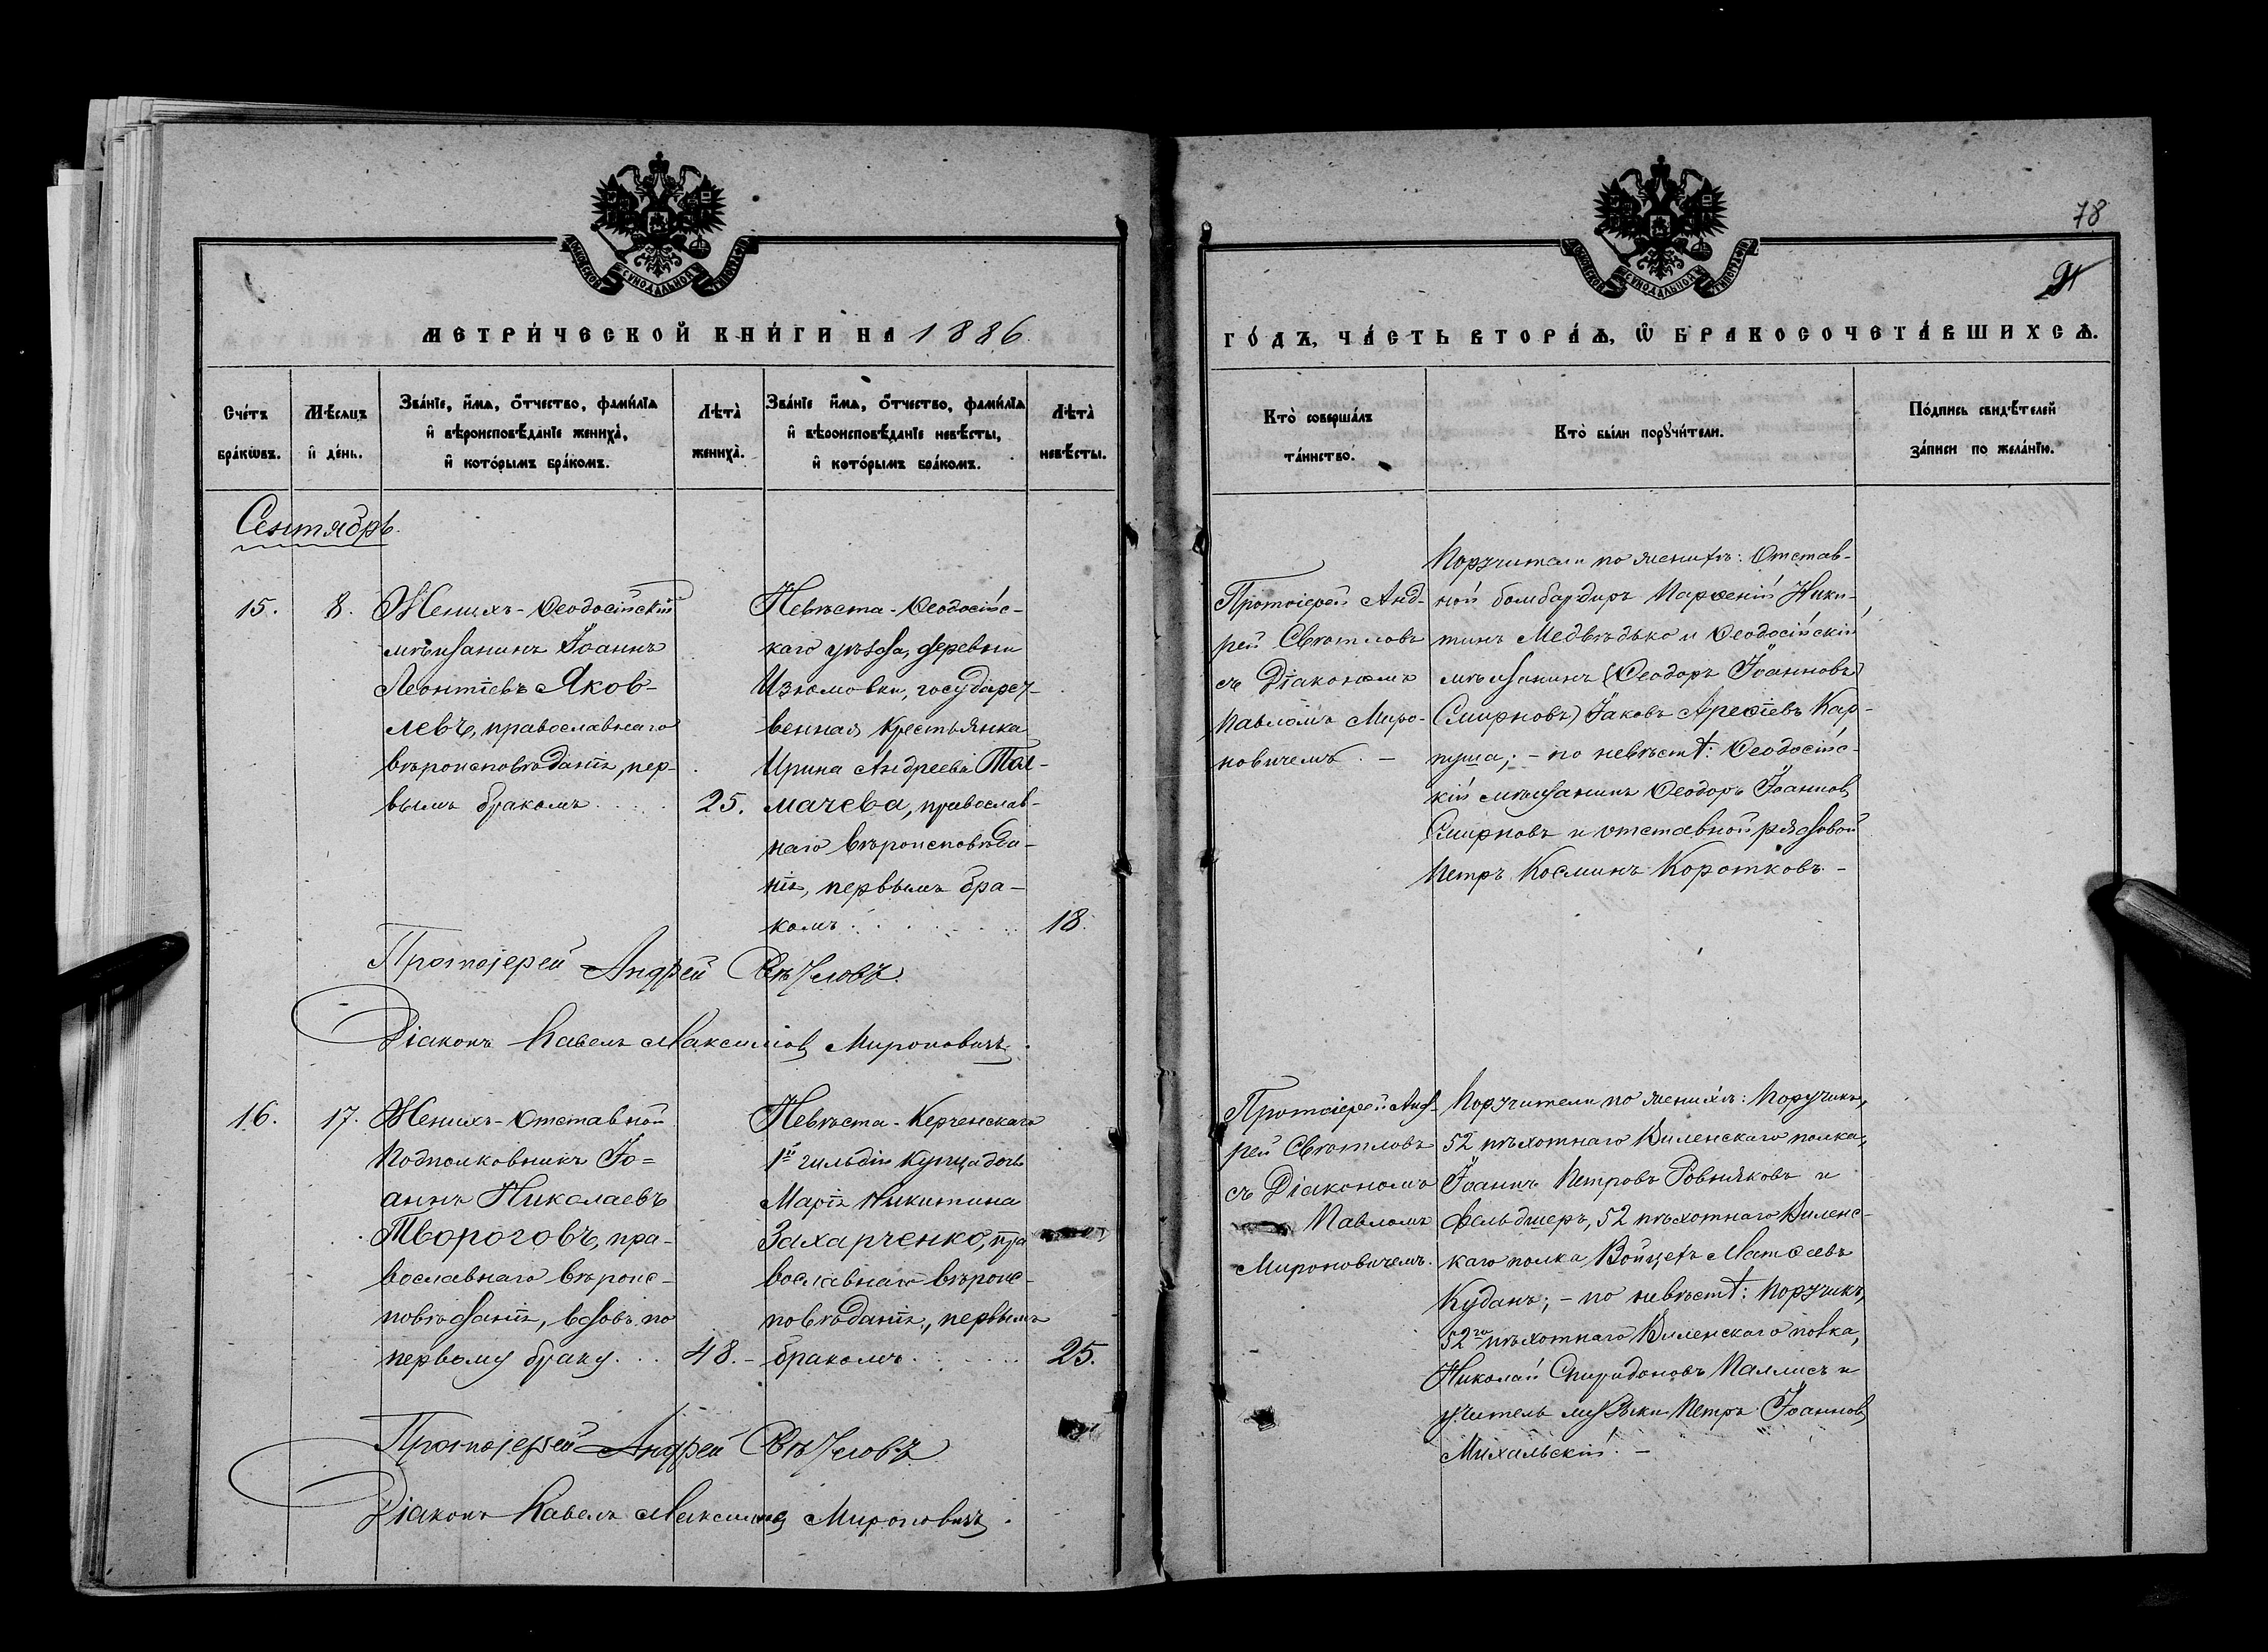 78
91
МОСКОВСКОЙ СУНОДАЛЬНОЙ ТИПОГРАФІИ
МОСКОВСКОЙ СУНОДАЛЬНОЙ ТИПОГРАФІИ
МЕТРИ́ЧЕСКОЙ КНИ́ГИ НА 1886
ГО́ДЪ, ЧА́СТЬ ВТОРА́Ѧ, Ѽ БРАКОСОЧЕТА́ВШИХСѦ.
Сче́тъ бра́кѡвъ.
Мѣ́сѧцъ и҆ де́нь.
Зва́нїе, и҆́мѧ, ѻ҆́тчество, фами́лїѧ и҆ вѣроисповѣ́данїе жениха̀, и҆ кото́рымъ бра́комъ.
Лѣта̀ жениха̀.
Зва́нїе и҆́мѧ, ѻ҆́тчество, фами́лїѧ и҆ вѣроисповѣ́данїе невѣ́сты, и҆ кото́рымъ бра́комъ.
Лѣта̀ невѣ́сты.
Кто̀ соверша́лъ та́инство.
Кто̀ бы́ли порꙋчи́тели.
По́дпись свидѣ́телей за́писи по жела́нїю.
Сентябрь.
15.
8.
Женихъ-Ѳеодосійскій
мѣщанинъ Іоаннъ
Леонтіевъ Яков-
левъ, православнаго
вѣроисповѣданія, пер-
вымъ бракомъ
25.
Невѣста-Ѳеодосійс-
каго уѣзда, деревни
Изюмовки, государст-
венная крестьянка
Ирина Андреева Тол-
мачева, православ-
наго вѣроисповѣда-
нія, первымъ бра-
комъ
18.
Протоіерей Анд-
рей Свѣтловъ
съ Діакономъ
Павломъ Миро-
новичемъ. -
Поручители по женихѣ: Отстав-
ной бомбардиръ Парѳеній Ники-
тинъ Медвѣдько и Ѳеодосійскій
мѣщанинъ (Ѳеодоръ Іоанновъ
Смирновъ) Іаковъ Ареѳіевъ Кар-
пуша; - по невѣстѣ: Ѳеодосійс-
кій мѣщанинъ Ѳеодоръ Іоанновъ
Смирновъ и отставной рядовой
Петръ Косминъ Коротковъ. -
Протоіерей Андрей Свѣтловъ.
Діаконъ Павелъ Максимовъ Мироновичъ.
16.
17.
Женихъ-Отставной
Подполковникъ Іо=
аннъ Николаевъ
Твороговъ, пра-
вославнаго вѣроис-
повѣданія, вдовъ по
первому браку.
48.
Невѣста-Керченскаго
1й гильдіи купца дочь
Марія Никитина
Захарченко, пра
вославнаго вѣроис-
повѣданія, первымъ
бракомъ
25.
Протоіерей Анд-
рей Свѣтловъ
съ Діакономъ
Павломъ
Мироновичемъ.
Поручители по женихѣ: Поручикъ,
52 пѣхотнаго Виленскаго полка,
Іоаннъ Петровъ Ровняковъ и
фельдшеръ, 52 пѣхотнаго Виленс-
каго полка Войцехъ Матѳеевъ
Куданъ; - по невѣстѣ: Поручикъ,
52го пѣхотнаго Виленскаго полка,
Николай Спиридоновъ Паллисъ и
учитель музыки Петръ Іоанновъ
Михальскій. -
Протоіерей Андрей Свѣтловъ
Діаконъ Павелъ Максимовъ Мироновичъ.